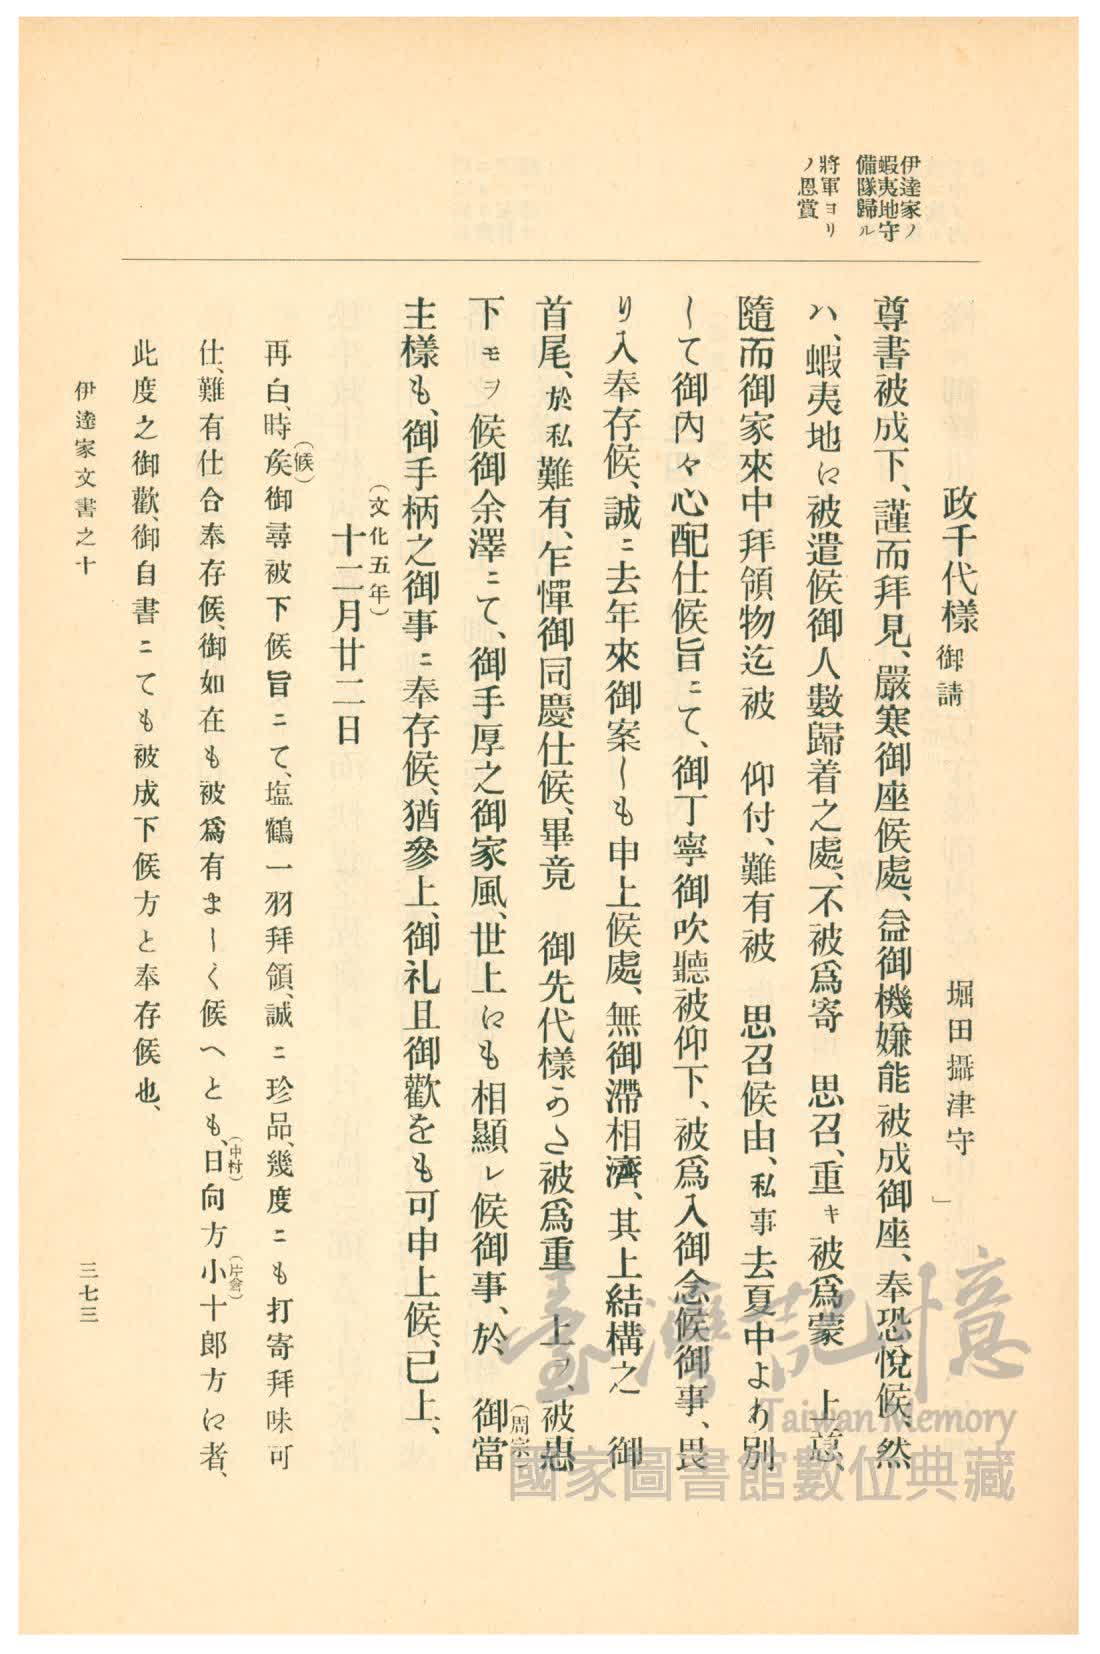 伊達家ノ
蝦夷地守
備隊歸ル
將軍ヨリ
ノ恩賞
政千代樣御請　堀田攝津守」
尊書被成下、謹而拜見、嚴寒御座候處、益御機嫌能被成御座、奉恐悅候、然
ハ、蝦夷地に被遣候御人數歸着之處、不被爲寄　思召、重キ被爲蒙　上意、
隨而御家來中拜領物迄被　仰付、難有被　思召候由、私事去夏中より別
して御內々心配仕候旨ニて、御丁寧御吹聽被仰下、被爲入御念候御事、畏
り入奉存候、誠ニ去年來御案しも申上候處、無御滯相濟、其上結構之　御
首尾、於私難有、乍憚御同慶仕候、畢竟　御先代樣のた被爲重　上ヲ、被惠
下モヲ候御余澤ニて、御手厚之御家風、世上にも相顯レ候御事、於　御當
(周宗)
主樣も、御手柄之御事ニ奉存候、猶參上、御礼且御歡をも可申上候、已上、
(文化五年)
十二月廿二日
再白、時矦御尋被下候旨ニて、塩鶴一羽拜領、誠ニ珍品、幾度ニも打寄拜味可
(候)
仕、難有仕合奉存候、御如在も被爲有ましく候へとも、日向方小十郎方に者、
(中村)
(片倉)
此度之御歡、御自書ニても被成下候方と奉存候也、
伊達家文書之十
三七三
臺灣記憶
Taiwan Memory
國家圖書館數位典藏